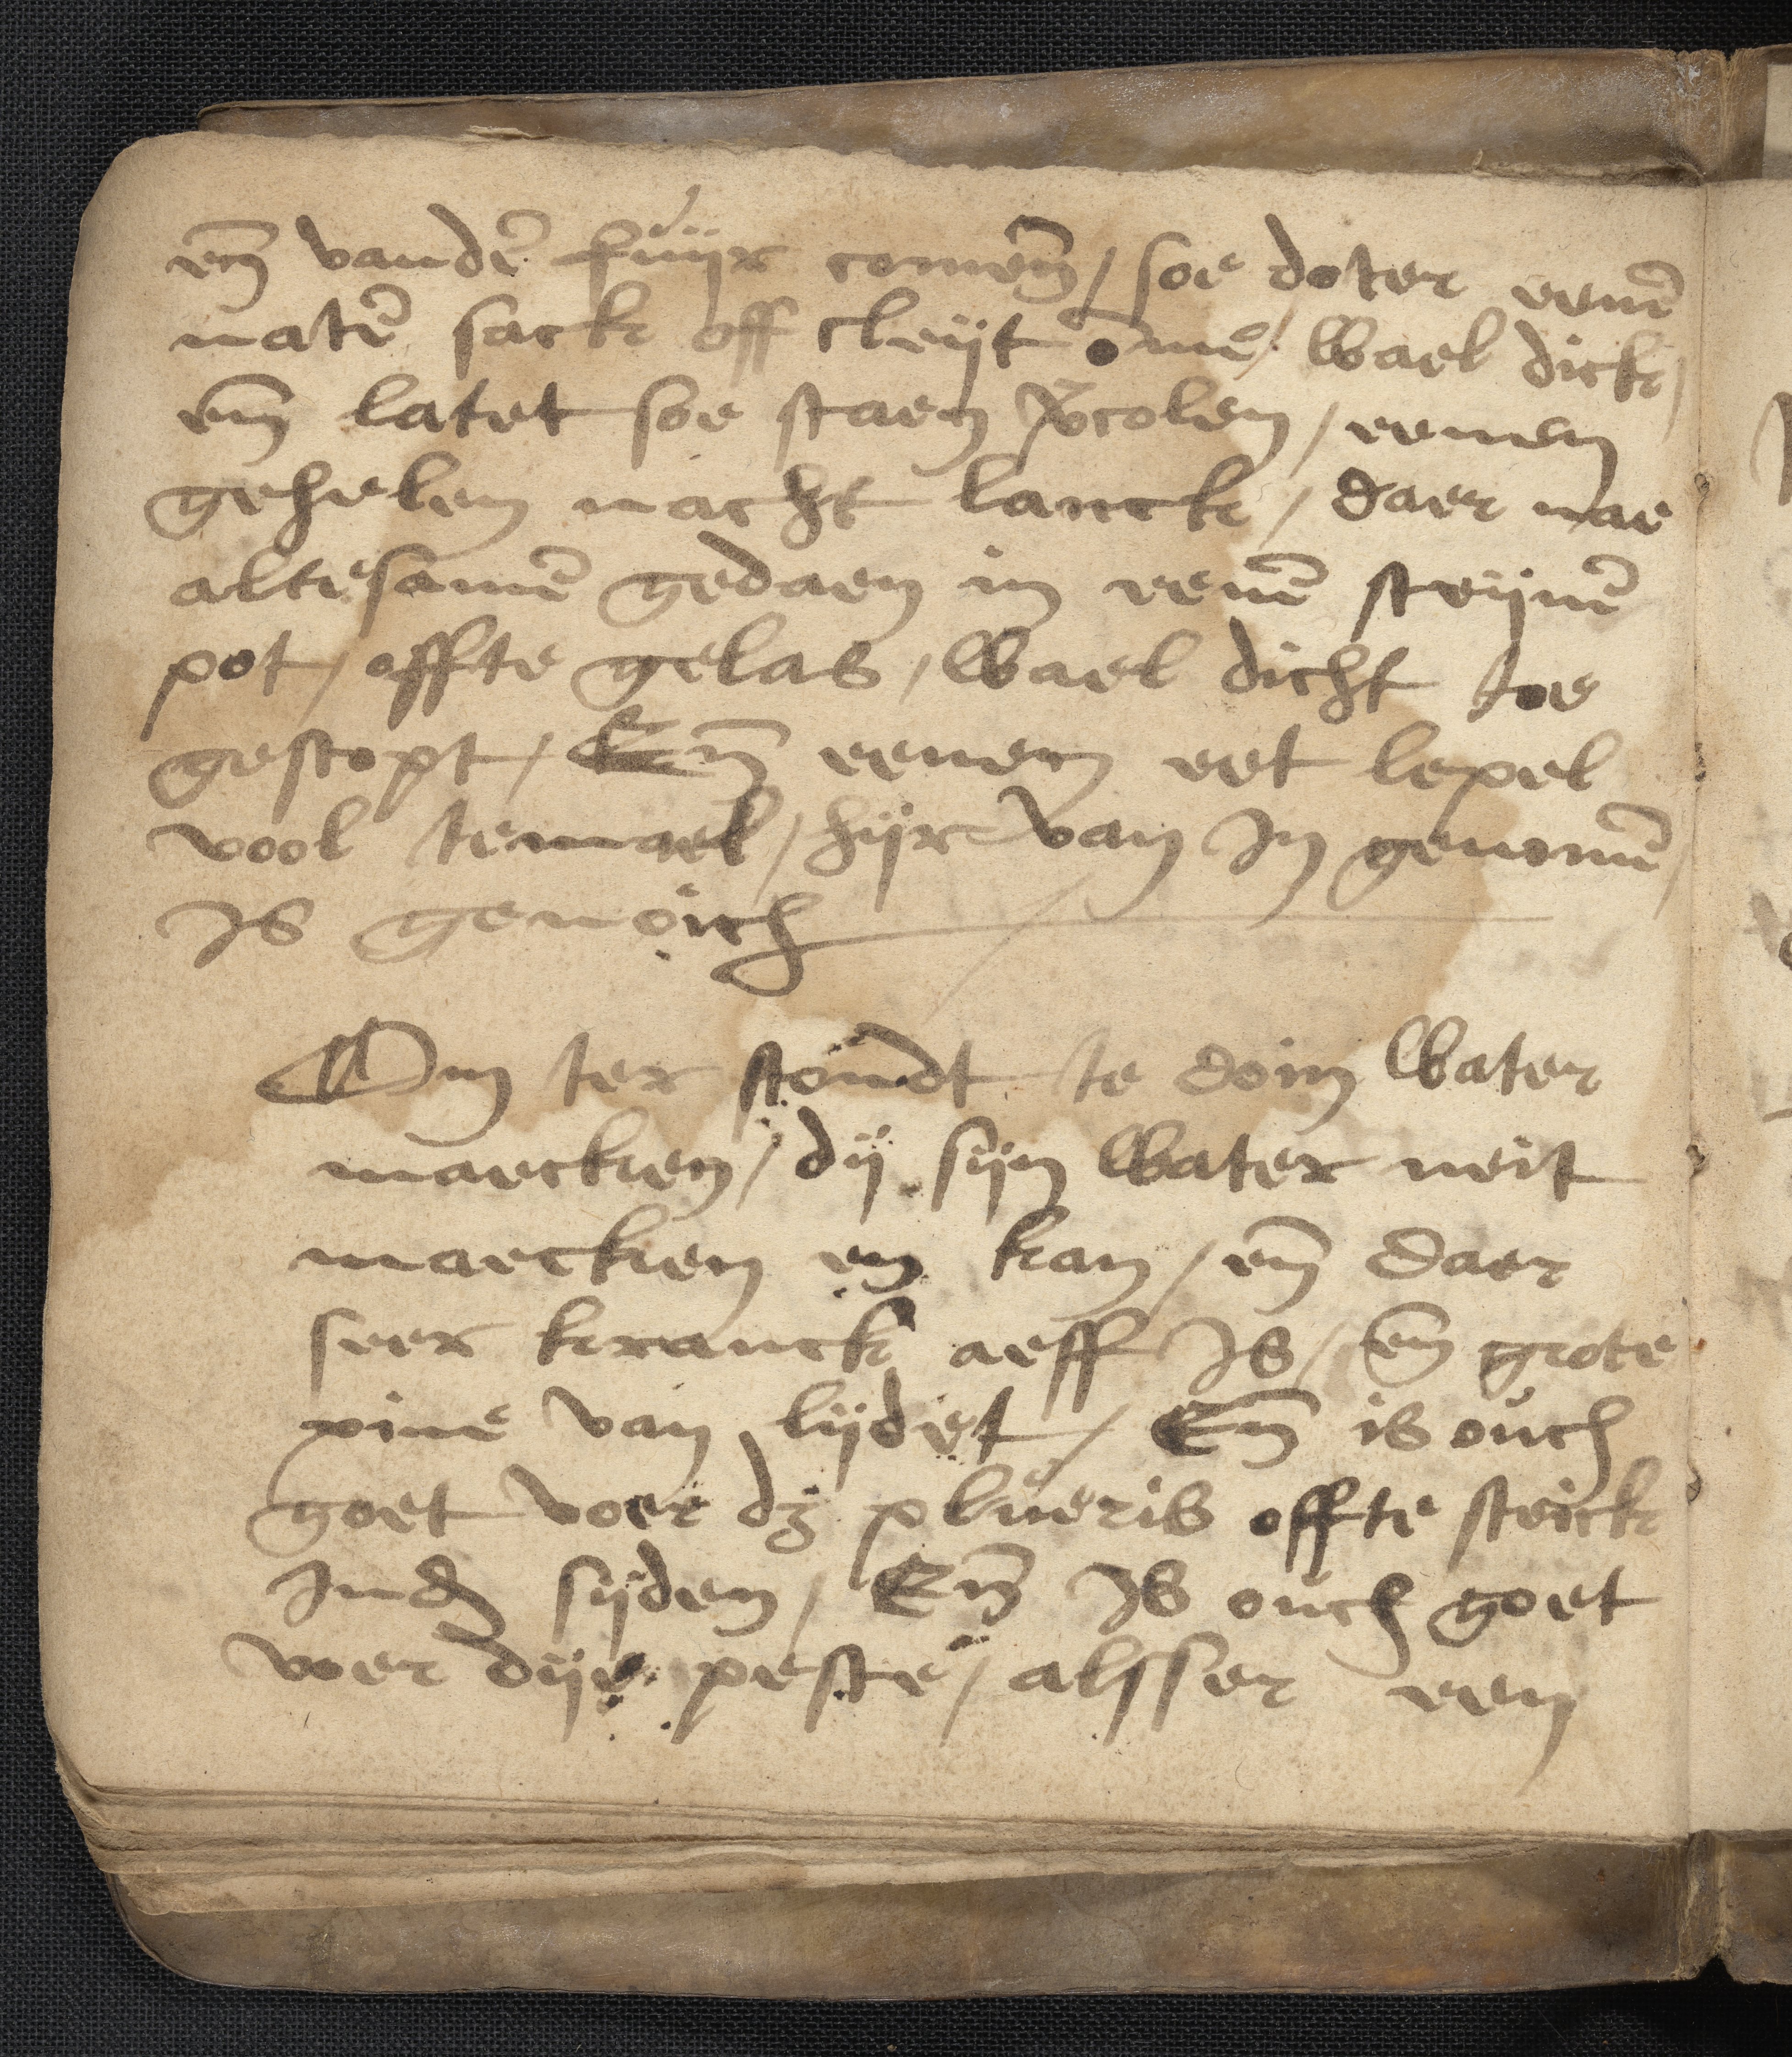 en̄ vandē fuijr comen̄ / soe doter eenē
natē sack off cleijt om̄e / wael dick /
en̄ latet soe staen v̄colen / eenen
gehelen nacht lanck / daer nae
altesamē gedaen in eenē steijnē
pot / offte gelas / wael dicht toe
gestopt / En̄ eenen eet lepel
vool temael / hijr van In genomē /
Is genoich
Om ter stondt te doin water
maecken / dij sijn water neit
maecken en kan / en̄ daer
seer kranck aeff Is / en̄ grote
pine van lijdet / En̄ is ouch
goet voer dz plueris offte steick
Ind sijden / En̄ Is ouch goet
voer dije peste / alsser een